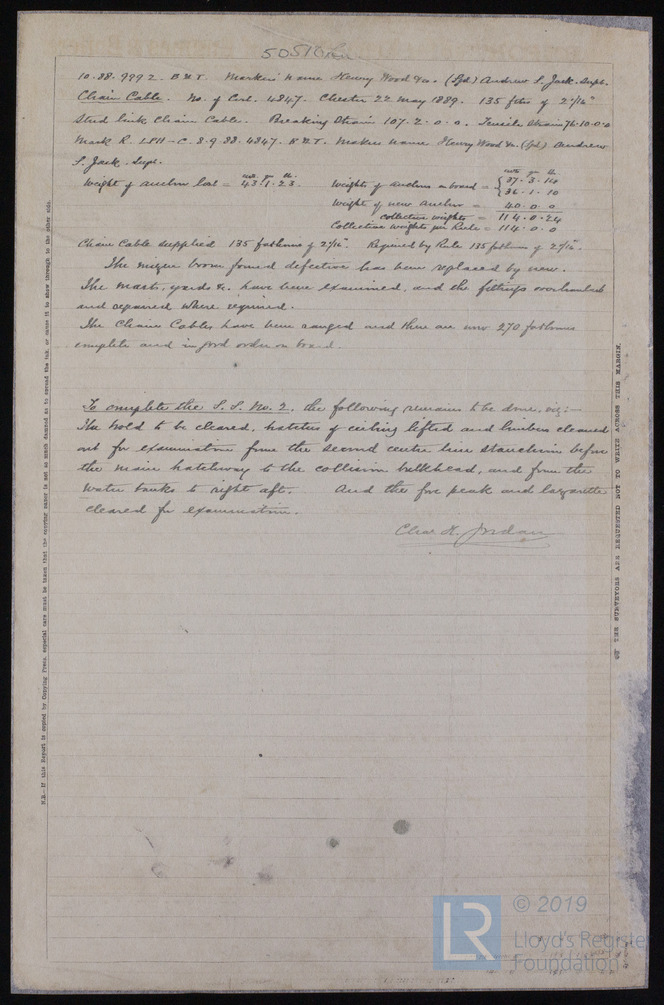 10.88.9992. B & T. Makers name Henry Wood & Co. (Sgd) Andrew S. Jack. Supt.
Chain Cable. No. of Cert. 4847. Chester 22 May 1889. 135 fths of 2 1/16"
Stud link Chain Cable. Breaking Strain 107.2.0.0. Tensile Strain 76.10.0.0
Mark R. LPH-C. 8.9.88.4847. B & T. Makers name Henry Wood & Co. (Sgd) Andrew
S. Jack. Supt.
Weight of anchor lost = 43.1.23. Weight of anchors on board = {37.3.14
36.1.10
Weight of new anchor = 40.0.0
Collective weights = 114.0.24
Collective weights per Rule = 114.0.0
Chain Cable supplied 135 fathoms of 2 1/16". Required by Rule 135 fathoms of 2 1/16".
The mizen boom found defective has been replaced by new.
The masts, yards &c. have been examined, and the fittings overhauled
and repaired where required.
The Chain Cables have been ranged and there are now 270 fathoms
complete and in good order on board.
To complete the S.S. No. 2. the following remains to be done, viz:-
The hold to be cleared, hatches of ceiling lifted and limbers cleared
out for examination from the second centre line stanchion before
the main hatchway to the collision bulkhead, and from the
water tanks to right aft. And the fore peak and lazarette
cleared for examination.
Chas. H. Jordan
N.B.—If this Report is copied by Copying Press, especial care must be taken that the copying paper is not so much damped as to spread the ink, or cause it to show through to the other side.
THE SURVEYORS ARE REQUESTED NOT TO WRITE ACROSS THIS MARGIN.
LR
© 2019
Lloyd's Register
Foundation